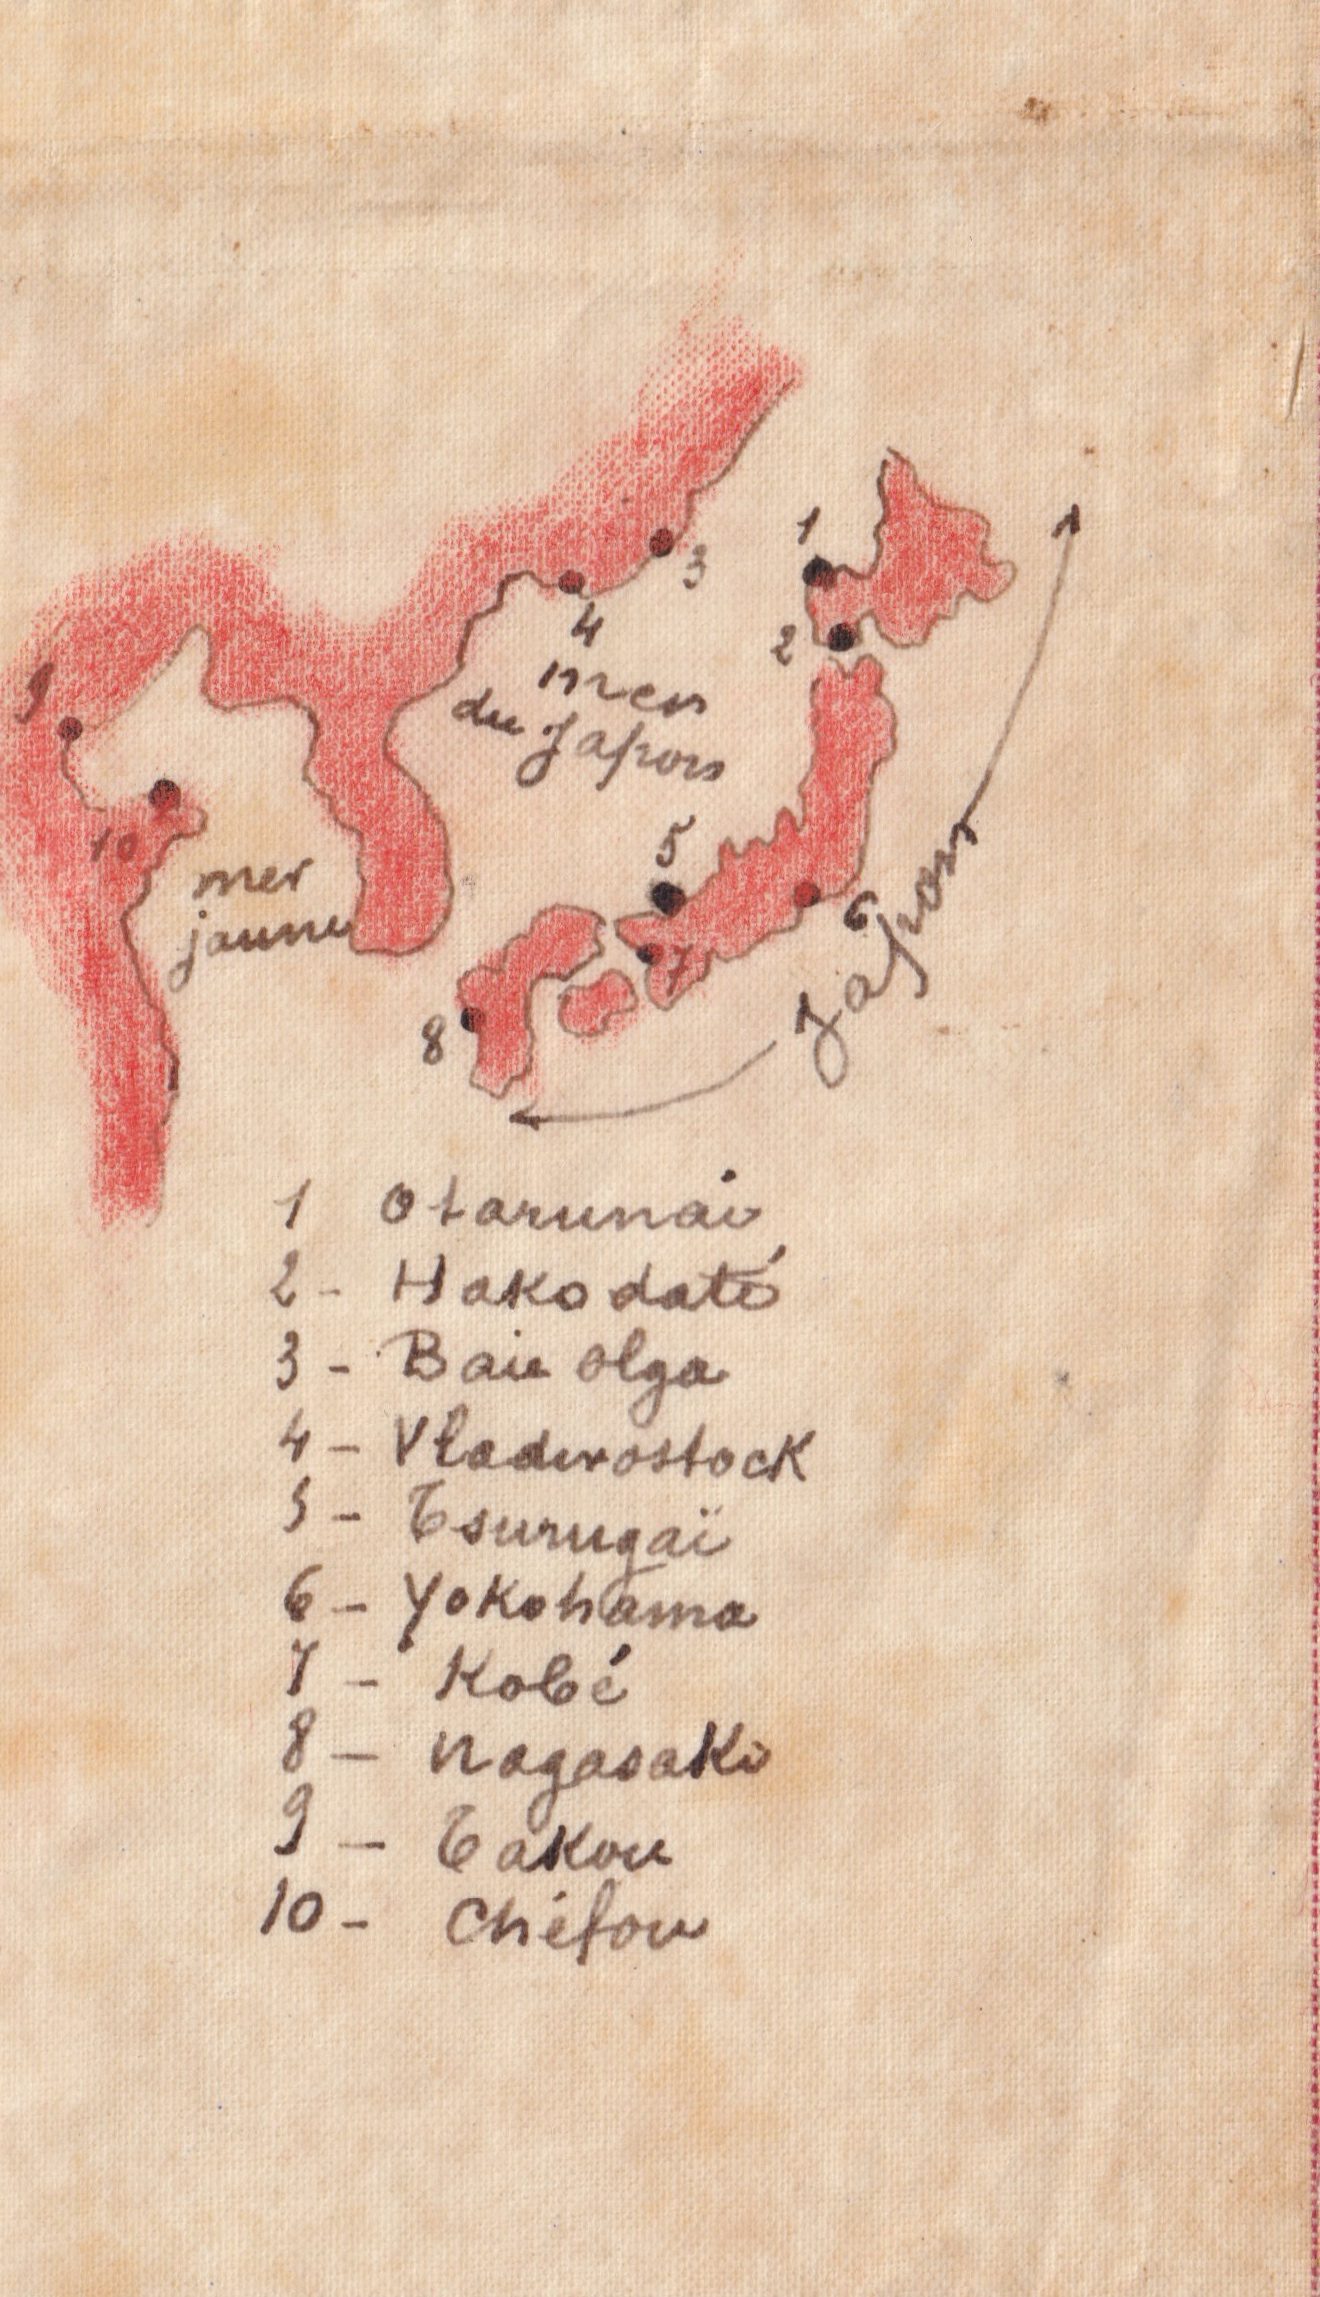 1
3
2
4
mer
du Japon
9
10
mer
jaune
5
6
7
Japon
8
1 Otarunai
2 - Hakodaté
3 - Baie Olga
4 - Vladivostock
5 - Tsurugaï
6 - Yokohama
7 - Kobé
8 - Nagasaki
9 - Takou
10 - Chéfou